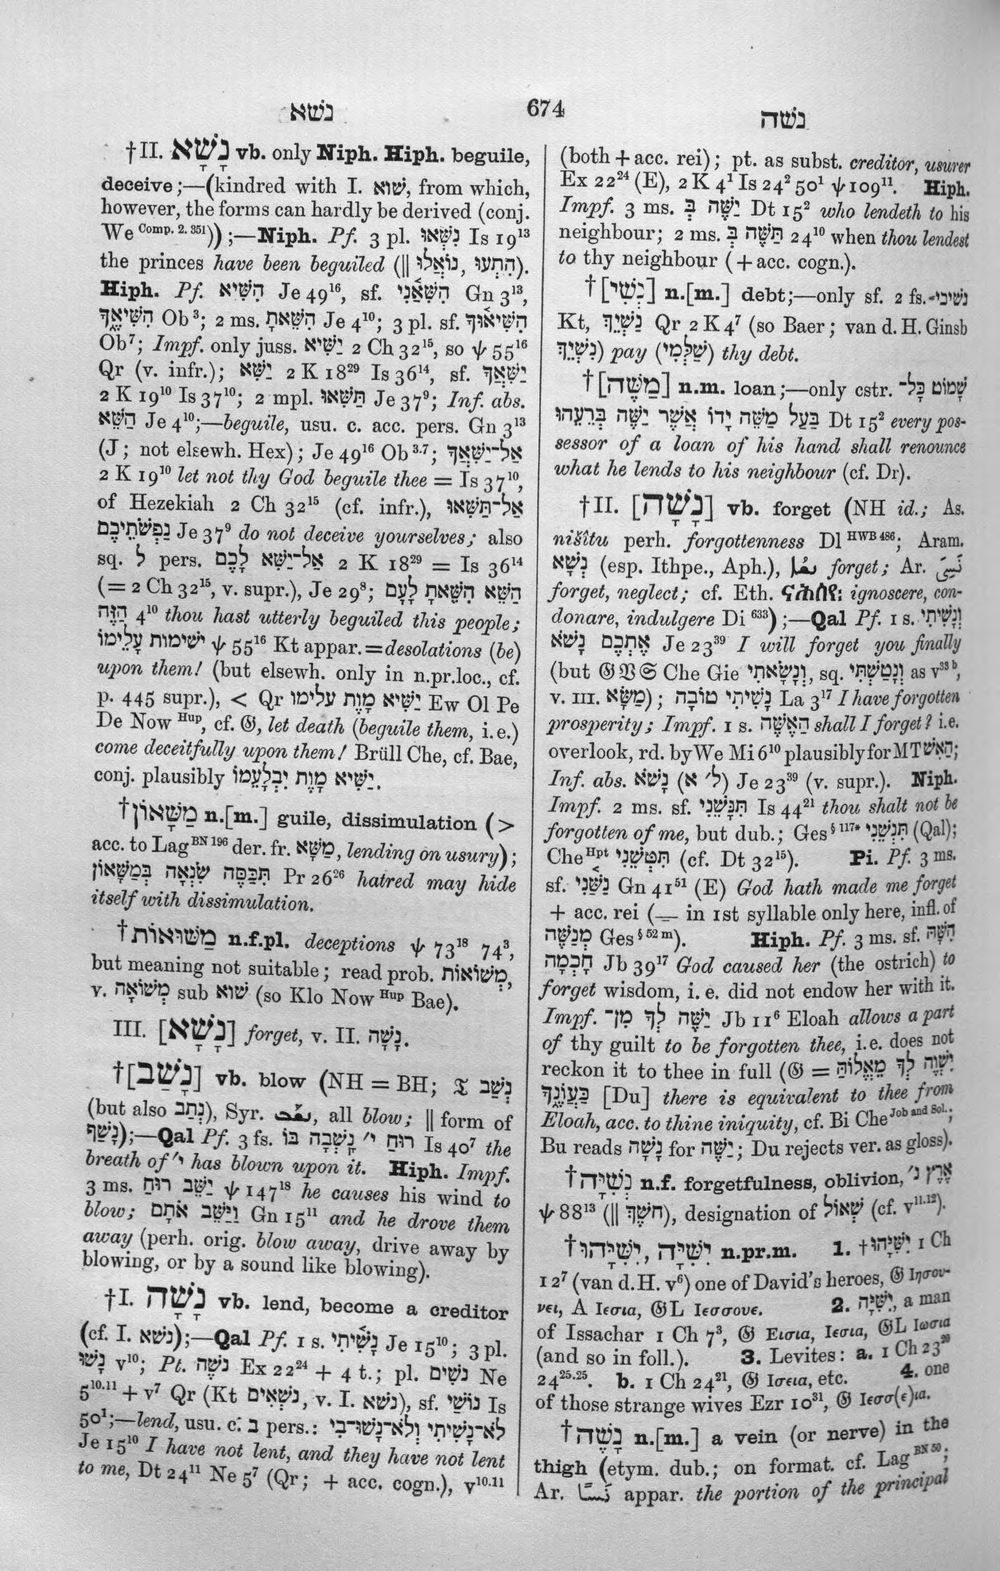 נשׁא
674
נשׁה
†II. נָשָׁא vb. only Niph. Hiph. beguile,
deceive;—(kindred with I. שׁוא, from which,
however, the forms can hardly be derived (conj.
We Comp. 2. 351));—Niph. Pf. 3 pl. נִשְּׁאוּ Is 19¹³
the princes have been beguiled (|| נוֹאֲלוּ, הִתְעוּ).
Hiph. Pf. הִשִּׁיא Je 49¹⁶, sf. הִשִּׁיאַ֫נִי Gn 3¹³,
הִשִּׁיאֶ֑ךָ Ob³; 2 ms. הִשֵּׁאתָ Je 4¹⁰; 3 pl. sf. הִשִּׁיא֫וּךָ
Ob⁷; Impf. only juss. יַשִּׁיא 2 Ch 32¹⁵, so ψ 55¹⁶
Qr (v. infr.); יַשִּׁא 2 K 18²⁹ Is 36¹⁴, sf. יַשִּׁאֲךָ
2 K 19¹⁰ Is 37¹⁰; 2 mpl. תַּשִּׁאוּ Je 37⁹; Inf. abs.
הַשֵּׁא Je 4¹⁰;—beguile, usu. c. acc. pers. Gn 3¹³
(J; not elsewh. Hex); Je 49¹⁶ Ob³·⁷; אַל־יַשִּׁאֲךָ
2 K 19¹⁰ let not thy God beguile thee = Is 37¹⁰,
of Hezekiah 2 Ch 32¹⁵ (cf. infr.), אַל־תַּשִּׁאוּ
נַפְשֹׁתֵיכֶם Je 37⁹ do not deceive yourselves; also
sq. ל pers. אַל־יַשִּׁא לָכֶם 2 K 18²⁹ = Is 36¹⁴
(= 2 Ch 32¹⁵, v. supr.), Je 29⁸; הַשֵּׁא הִשֵּׁאתָ לָעָם
הַזֶּה 4¹⁰ thou hast utterly beguiled this people;
ישׁימות עָלֵימוֹ ψ 55¹⁶ Kt appar. = desolations (be)
upon them! (but elsewh. only in n.pr.loc., cf.
p. 445 supr.), < Qr יַשִּׁיא מָוֶת עלימו Ew Ol Pe
De Now Hup, cf. 𝔊, let death (beguile them, i.e.)
come deceitfully upon them! Brüll Che, cf. Bae,
conj. plausibly יַשִּׁיא מָוֶת יִבְלָעֵמוֹ.
†מַשָּׁאוֹן n.[m.] guile, dissimulation (>
acc. to Lag BN 196 der. fr. מַשָּׁא, lending on usury);
תִּכַּסֶּה שִׂנְאָה בְּמַשָּׁאוֹן Pr 26²⁶ hatred may hide
itself with dissimulation.
†מַשּׁוּאוֹת n.f.pl. deceptions ψ 73¹⁸ 74³,
but meaning not suitable; read prob. מְשׁוֹאוֹת,
v. מְשׁוֹאָה sub שׁוא (so Klo Now Hup Bae).
III. [נָשָׁא] forget, v. II. נָשָׁה.
†[נָשַׁב] vb. blow (NH = BH; 𝔗 נְשַׁב
(but also נְתַב), Syr. ܢܫܒ, all blow; || form of
נָשַׁף);—Qal Pf. 3 fs. רוּחַ י׳ נָ֫שְׁבָה בּוֹ Is 40⁷ the
breath of י׳ has blown upon it. Hiph. Impf.
3 ms. יַשֵּׁב רוּחַ ψ 147¹⁸ he causes his wind to
blow; וַיַּשֵּׁב אֹתָם Gn 15¹¹ and he drove them
away (perh. orig. blow away, drive away by
blowing, or by a sound like blowing).
†I. נָשָׁה vb. lend, become a creditor
(cf. I. נשׁא);—Qal Pf. 1 s. נָשִׁ֫יתִי Je 15¹⁰; 3 pl.
נָשׁוּ v¹⁰; Pt. נֹשֶׁה Ex 22²⁴ + 4 t.; pl. נֹשִׁים Ne
5¹⁰·¹¹ + v⁷ Qr (Kt נֹשְׁאִים, v. I. נשׁא), sf. נוֹשַׁי Is
50¹;—lend, usu. c. ב pers.: לֹא־נָשִׁיתִי וְלֹא־נָשׁוּ־בִי
Je 15¹⁰ I have not lent, and they have not lent
to me, Dt 24¹¹ Ne 5⁷ (Qr; + acc. cogn.), v¹⁰·¹¹
(both + acc. rei); pt. as subst. creditor, usurer
Ex 22²⁴ (E), 2 K 4¹ Is 24² 50¹ ψ 109¹¹. Hiph.
Impf. 3 ms. יַשֶּׁה בְּ Dt 15² who lendeth to his
neighbour; 2 ms. תַשֶּׁה בְּ 24¹⁰ when thou lendest
to thy neighbour (+ acc. cogn.).
†[נְשִׁי] n.[m.] debt;—only sf. 2 fs. נשׁיכי
Kt, נִשְׁיֵךְ Qr 2 K 4⁷ (so Baer; van d. H. Ginsb
נִשְׁיֵךְ) pay (שַׁלְּמִי) thy debt.
†[מַשֶּׁה] n.m. loan;—only cstr. שָׁמוֹט כָּל־
בַּעַל מַשֵּׁה יָדוֹ אֲשֶׁר יַשֶּׁה בְּרֵעֵהוּ Dt 15² every pos-
sessor of a loan of his hand shall renounce
what he lends to his neighbour (cf. Dr).
†II. [נָשָׁה] vb. forget (NH id.; As.
nišîtu perh. forgottenness Dl HWB 486; Aram.
נְשָׁא (esp. Ithpe., Aph.), ܢܫܐ forget; Ar. نَسِيَ
forget, neglect; cf. Eth. ignoscere, con-
donare, indulgere Di 633);—Qal Pf. 1 s. וְנָשִׁיתִי
אֶתְכֶם נָשֹׁא Je 23³⁹ I will forget you finally
(but 𝔊 𝔙 𝔖 Che Gie וְנָשָׂאתִי, sq. וְנָטַשְׁתִּי as v³³ᵇ,
v. III. מַשָּׂא); נָשִׁיתִי טוֹבָה La 3¹⁷ I have forgotten
prosperity; Impf. 1 s. הַאֶשֶּׁה shall I forget? i.e.
overlook, rd. by We Mi 6¹⁰ plausibly for MT הַאִשׁ;
Inf. abs. נָשֹׁא (ל׳ א) Je 23³⁹ (v. supr.). Niph.
Impf. 2 ms. sf. תִּנָּשֵׁנִי Is 44²¹ thou shalt not be
forgotten of me, but dub.; Ges § 117* תִּנְשֵׁנִי (Qal);
Che Hpt תִּטְּשֵׁנִי (cf. Dt 32¹⁵). Pi. Pf. 3 ms.
sf. נַשַּׁנִי Gn 41⁵¹ (E) God hath made me forget
+ acc. rei ( in 1st syllable only here, infl. of
מְנַשֶּׁה Ges § 52 m). Hiph. Pf. 3 ms. sf. הִשָּׁהּ
חָכְמָה Jb 39¹⁷ God caused her (the ostrich) to
forget wisdom, i. e. did not endow her with it.
Impf. יַשֶּׁה לְךָ מִן־ Jb 11⁶ Eloah allows a part
of thy guilt to be forgotten thee, i.e. does not
reckon it to thee in full (𝔊 = יִשְׁוֶה לְךָ מֵאֱלוֹהַּ
כַּעֲוֹנֶךָ [Du] there is equivalent to thee from
Eloah, acc. to thine iniquity, cf. Bi Che Job and Sol.;
Bu reads נָשָׁה for יַשֶּׁה; Du rejects ver. as gloss).
†נְשִׁיָּה n.f. forgetfulness, oblivion, אֶרֶץ נ׳
ψ 88¹³ (|| חשֶׁךְ), designation of שְׁאוֹל (cf. v¹¹·¹²).
†יִשִּׁיָּה, יִשִּׁיָּהוּ n.pr.m. 1. †יִשִּׁיָּהוּ 1 Ch
12⁷ (van d. H. v⁶) one of David's heroes, 𝔊 Ιησου-
νει, A Ιεσια, 𝔊L Ιεσσουε. 2. יִשִּׁיָּה, a man
of Issachar 1 Ch 7³, 𝔊 Εισια, Ιεσια, 𝔊L Ιωσια
(and so in foll.). 3. Levites: a. 1 Ch 23²⁰
24²⁵·²⁵. b. 1 Ch 24²¹, 𝔊 Ισεια, etc. 4. one
of those strange wives Ezr 10³¹, 𝔊 Ιεσσ(ε)ια.
†נָשֶׁה n.[m.] a vein (or nerve) in the
thigh (etym. dub.; on format. cf. Lag BN 50;
Ar. نَسًا appar. the portion of the principal